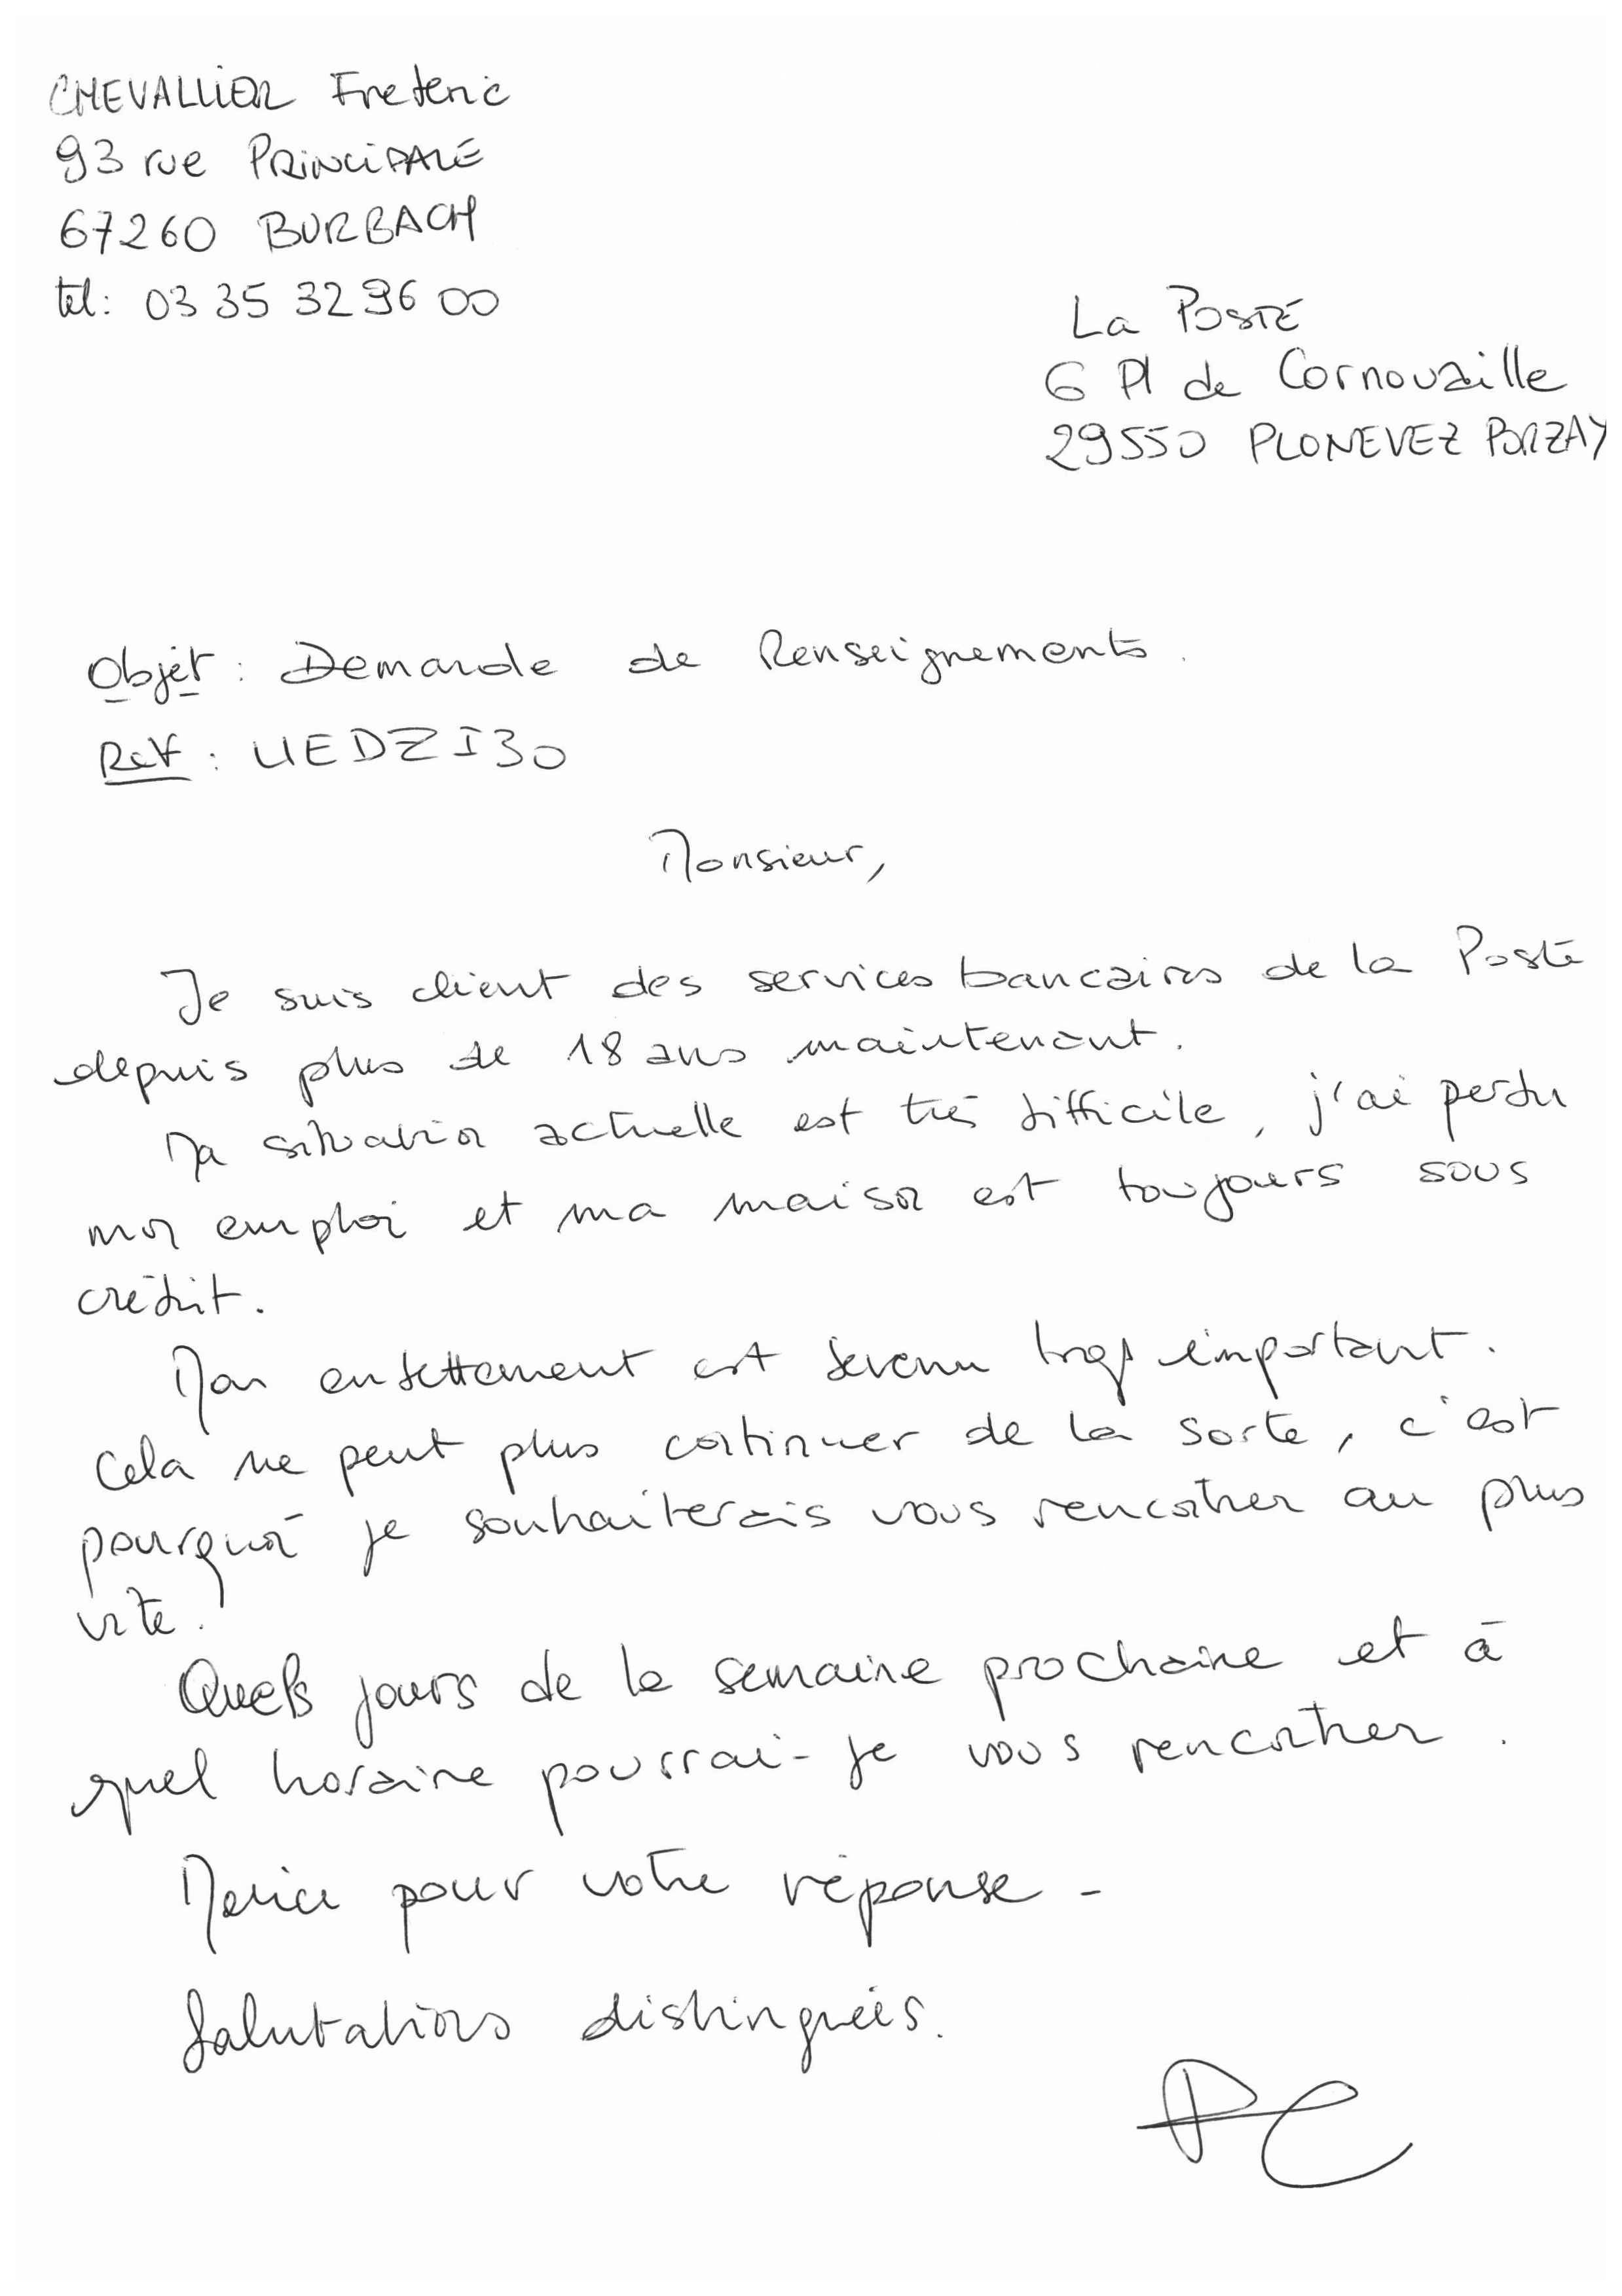 CHEVALLIER Frederic
93 rue PRINCIPALE
67260 BURBACH
tel: 03 35 32 96 00
La POSTE
6 Pl de Cornouaille
29550 PLONEVEZ PORZAY
Objet : Demande de Renseignements.
Ref : UEDZI30
Monsieur,
Je suis client des services bancaires de la Poste
depuis plus de 18 ans maintenant.
Ma situation actuelle est très difficile, j'ai perdu
mon emploi et ma maison est toujours sous
crédit.
Mon endettement est devenu trop important.
Cela ne peut plus continuer de la sorte, c'est
pourquoi je souhaiterais vous rencontrer au plus
vite.
Quels jours de la semaine prochaine et à
quel horaire pourrai-je vous rencontrer.
Merci pour votre réponse-
Salutations distinguées.
FC